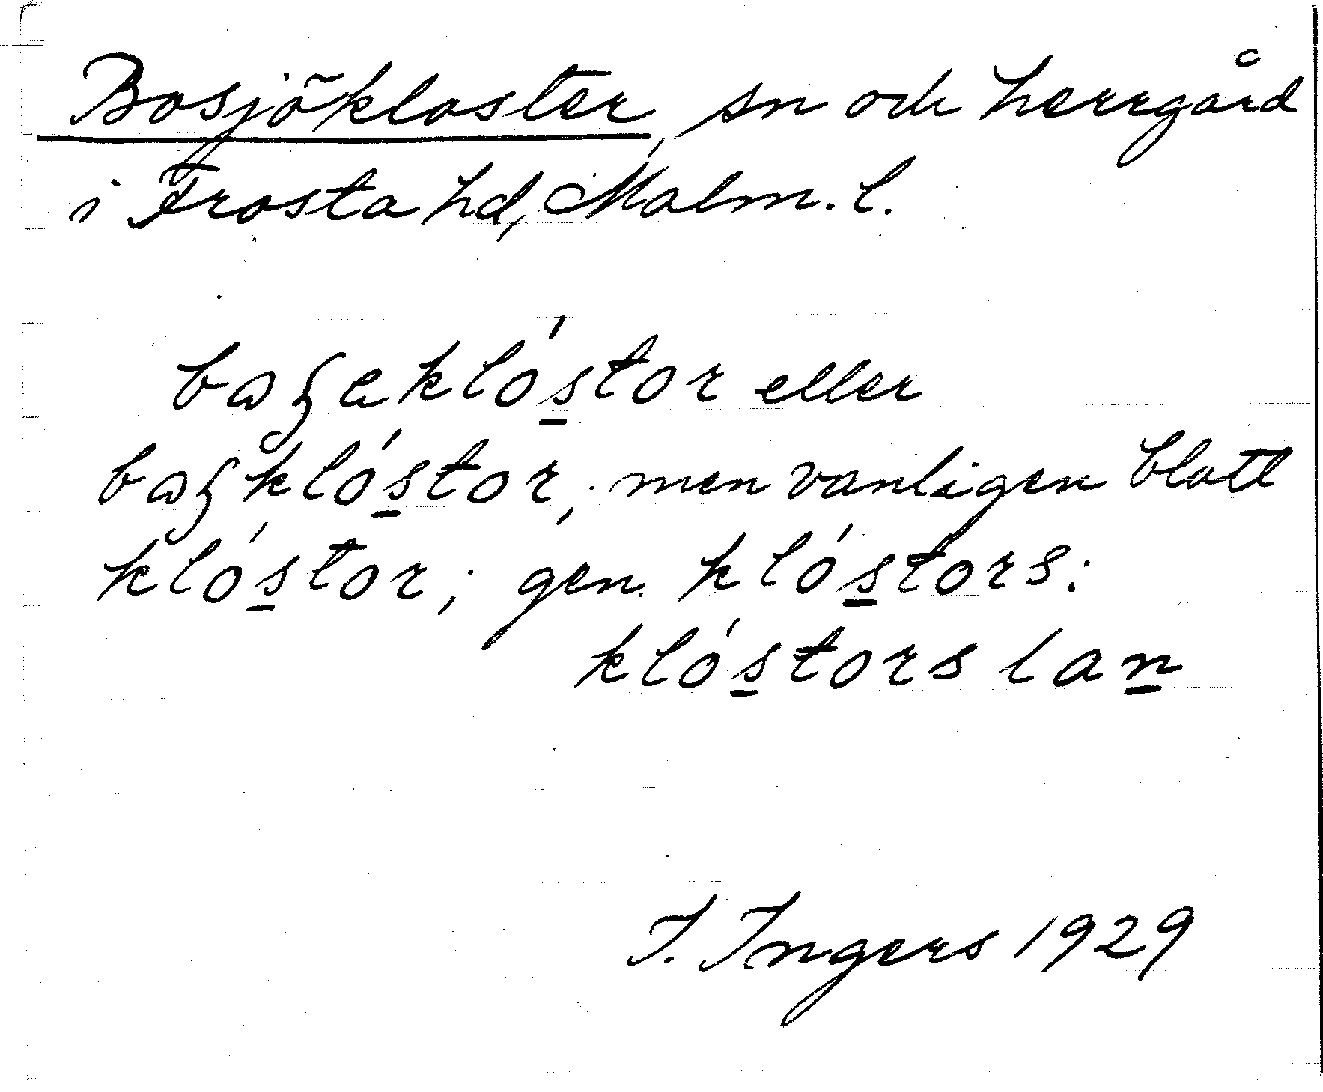 Bosjökloster, sn och herrgård
i Frosta hd, Malm. l.
eller
men vanligen blott
klóstor; gen. klóstors:
klóstors lan
I. Ingers 1929